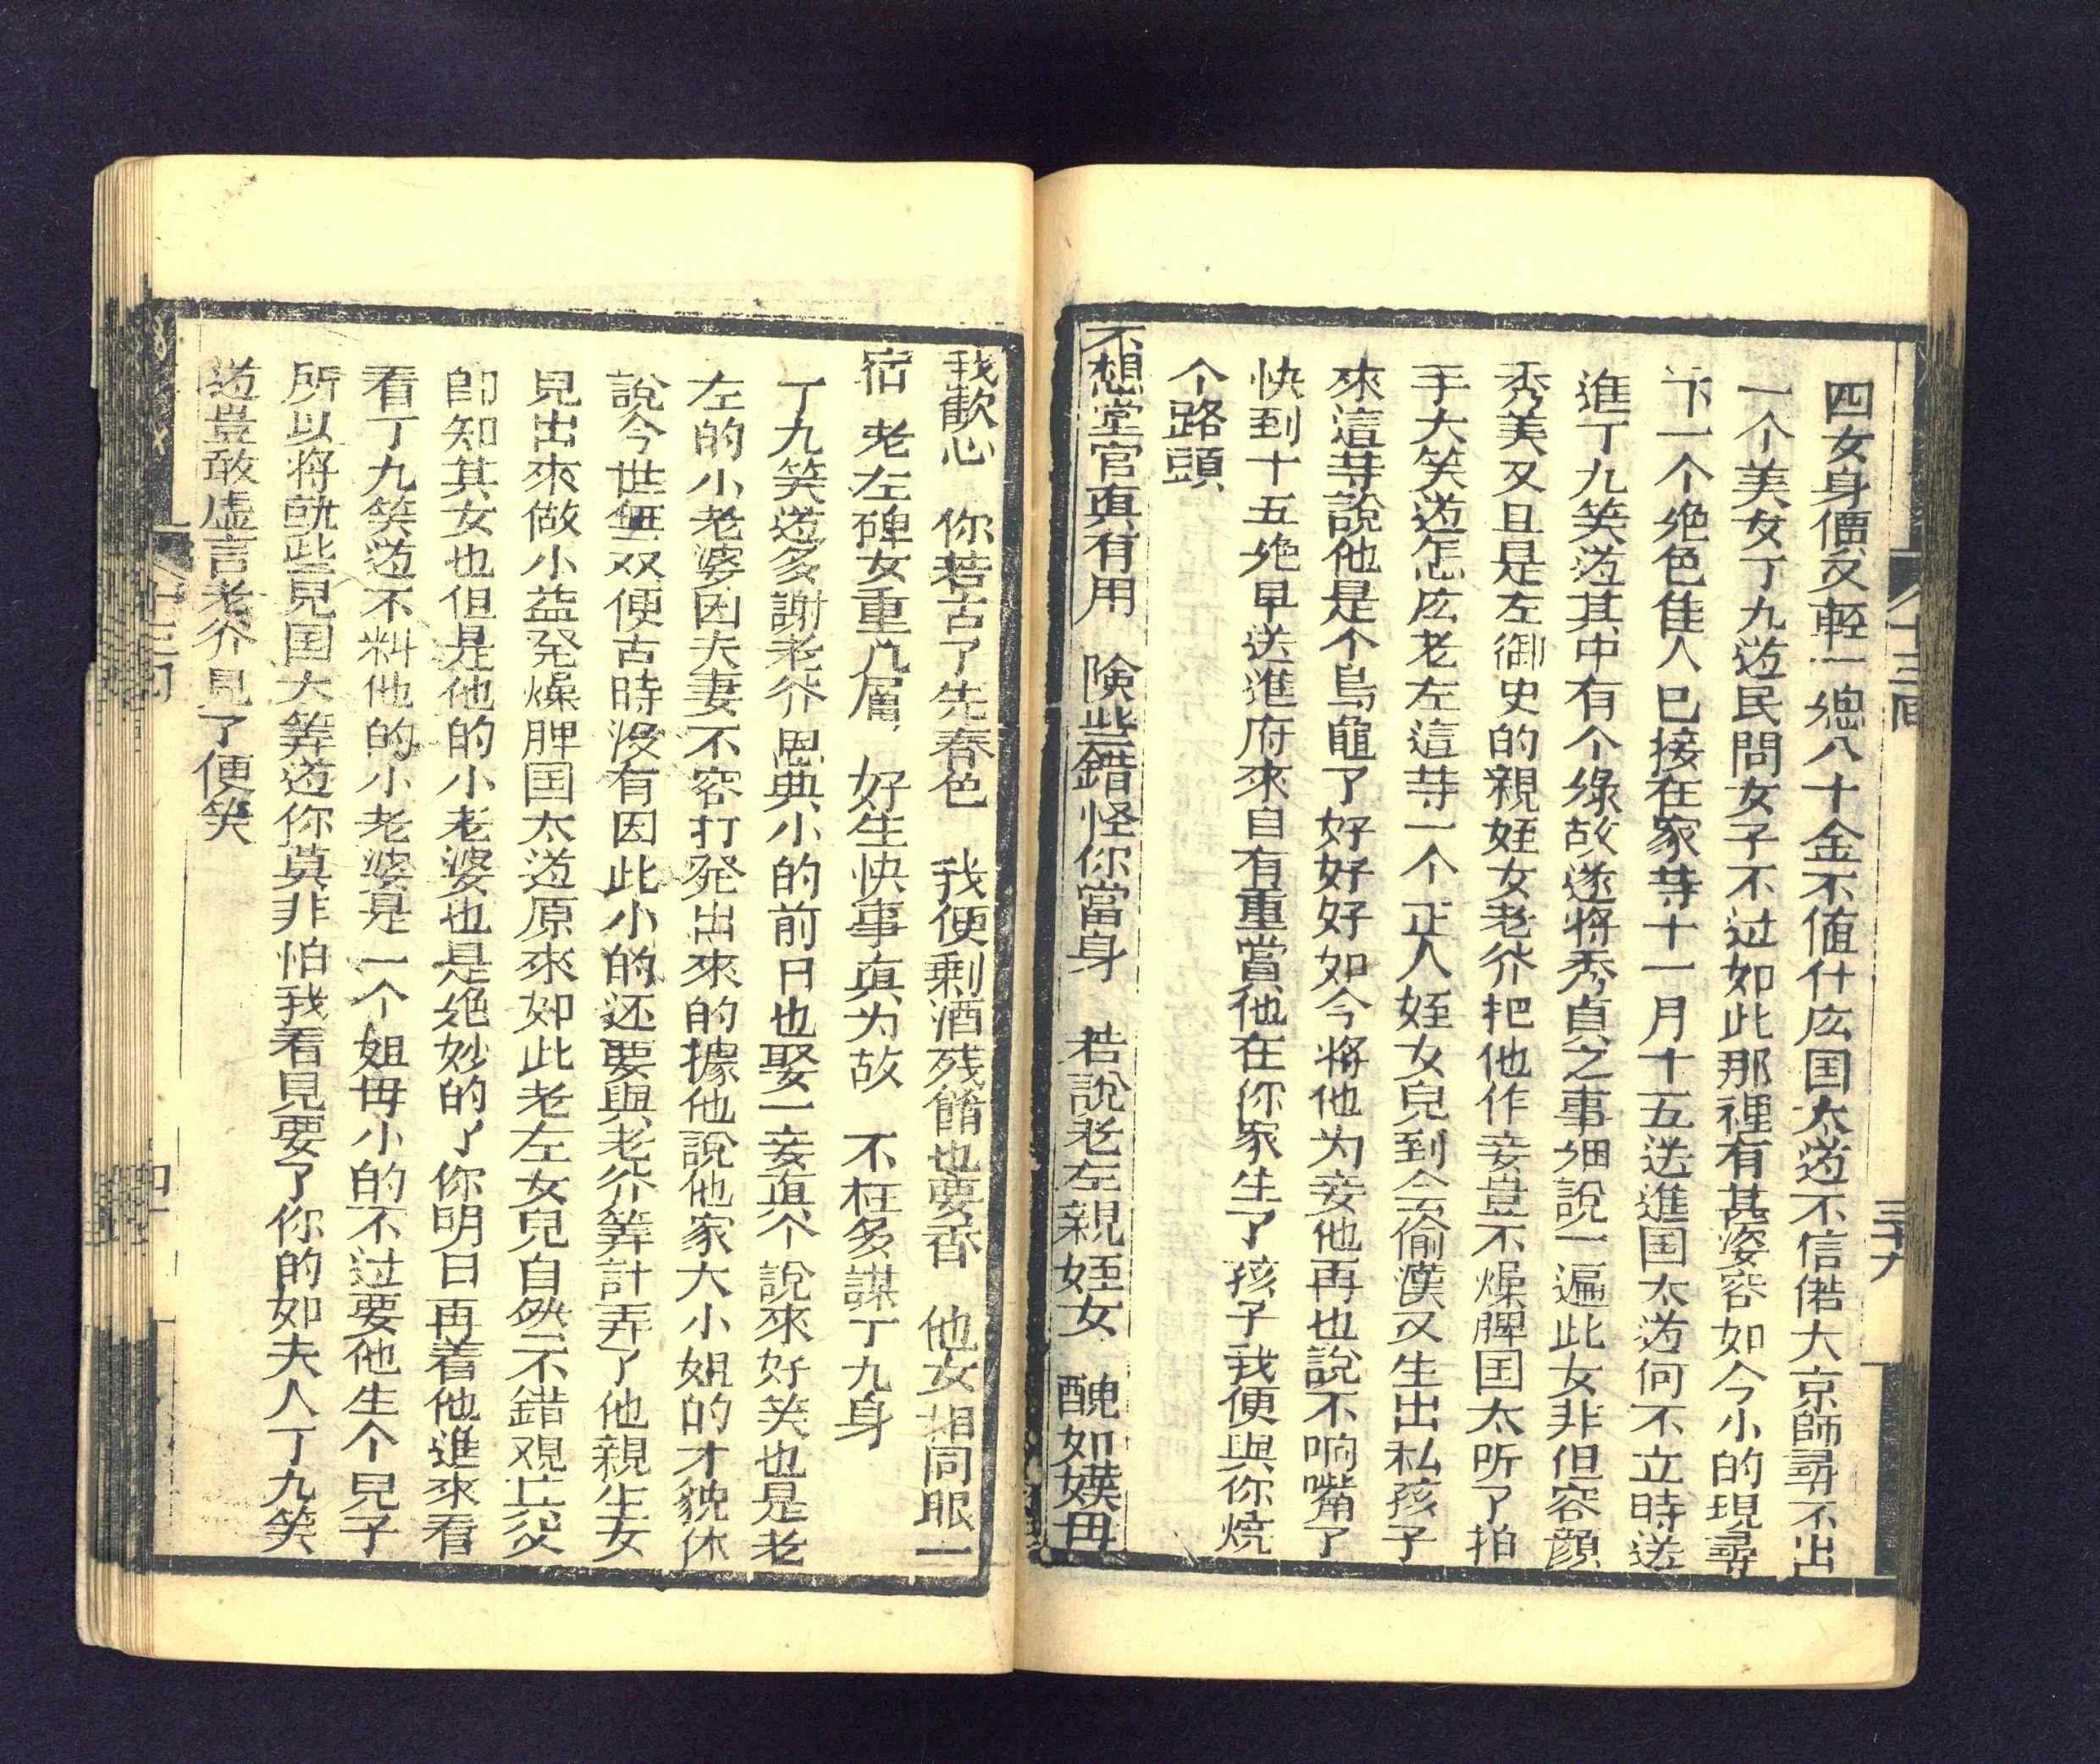 四女身價反輕一總八十金不值什庅国太道不信偌大京師尋不出
一个美女丁九道民間女子不过如此那裡有甚姿容如今小的現尋
下一个絶色佳人已接在家等十一月十五送進国太道何不立時送
進丁九笑道其中有个緣故遂將秀貞之事細說一遍此女非但容顔
秀美又且是左御史的親姪女老爷把他作妾豈不燥脾国太听了拍
手大笑道怎庅老左這等一个正人姪女兒到会偷漢又生出私孩子
來這等說他是个烏龜了好好好如今將他为妾他再也說不响嘴了
快到十五絶早送進府來自有重賞他在你家生了孩子我便與你燒
个路頭
不想堂官真有用　険些錯怪你當身　若說老左親姪女　醜如嫫母
我歡心　你若占了先春色　我便剩酒残餚也要香　他女相同眠一
宿　老左碑女重几層　好生快事真为故　不枉多謀丁九身
丁九笑道多謝老爷恩典小的前日也娶一妾真个說來好笑也是老
左的小老婆因夫妻不容打発出來的據他說他家大小姐的才貌休
說今世無双便古時没有因此小的还要與老爷筭計弄了他親生女
兒出來做小益発燥脾国太道原來如此老左女兒自然不錯观亡父
即知其女也但是他的小老婆也是絶妙的了你明日再着他進來看
看丁九笑道不料他的小老婆是一个姐毎小的不过要他生个兒子
所以将就些見国太筭道你莫非怕我看見要了你的如夫人丁九笑
道豈敢虚言老爷見了便笑
十三回
三十九